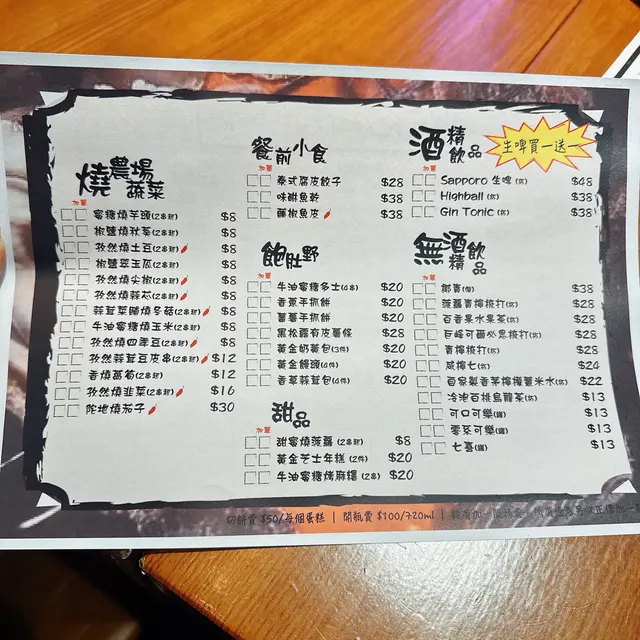 燒農場蔬菜
加單
蜜糖燒芋頭(2串起) $8
椒鹽燒秋葵(2串起) $8
孜然燒土豆(2串起) $8
椒鹽翠玉瓜(2串起) $8
孜然燒尖椒(2串起) $8
孜然燒蒜芯(2串起) $8
蒜茸菜脯燒冬菇(2串起) $8
牛油蜜糖燒玉米(2串起) $8
孜然燒四季豆(2串起) $8
孜然蒜茸豆皮串(2串起) $12
香燒萵筍(2串起) $12
孜然燒韭菜(2串起) $16
陀地燒茄子 $30
餐前小食
加單
泰式腐皮餃子 $28
味醂魚乾 $38
藤椒魚皮 $38
飽肚野
加單
牛油蜜糖多士(4串) $20
香蔥手抓餅 $20
薑蓉手抓餅 $20
黑松露有皮薯條 $28
黃金奶黃包(3件) $20
黃金饅頭(4件) $20
香草蒜茸包(4件) $20
甜品
加單
甜蜜燒菠蘿(2串起) $8
黃金芝士年糕(2件) $20
牛油蜜糖烤麻糬(2串) $20
酒精飲品
生啤買一送一
加單
Sapporo 生啤(杯) $48
Highball(杯) $38
Gin Tonic(杯) $38
無酒精飲品
加單
椰青(個) $38
菠蘿青檸梳打(杯) $28
百香果水果茶(杯) $28
巨峰可爾必思梳打(杯) $28
青檸梳打(杯) $28
咸檸七(杯) $24
百家梨香茅檸檬薏米水(杯) $22
冷泡白桃烏龍茶(杯) $13
可口可樂(罐) $13
零系可樂(罐) $13
七喜(罐) $13
切餅費 $50/每個蛋糕 | 開瓶費 $100/720ml |